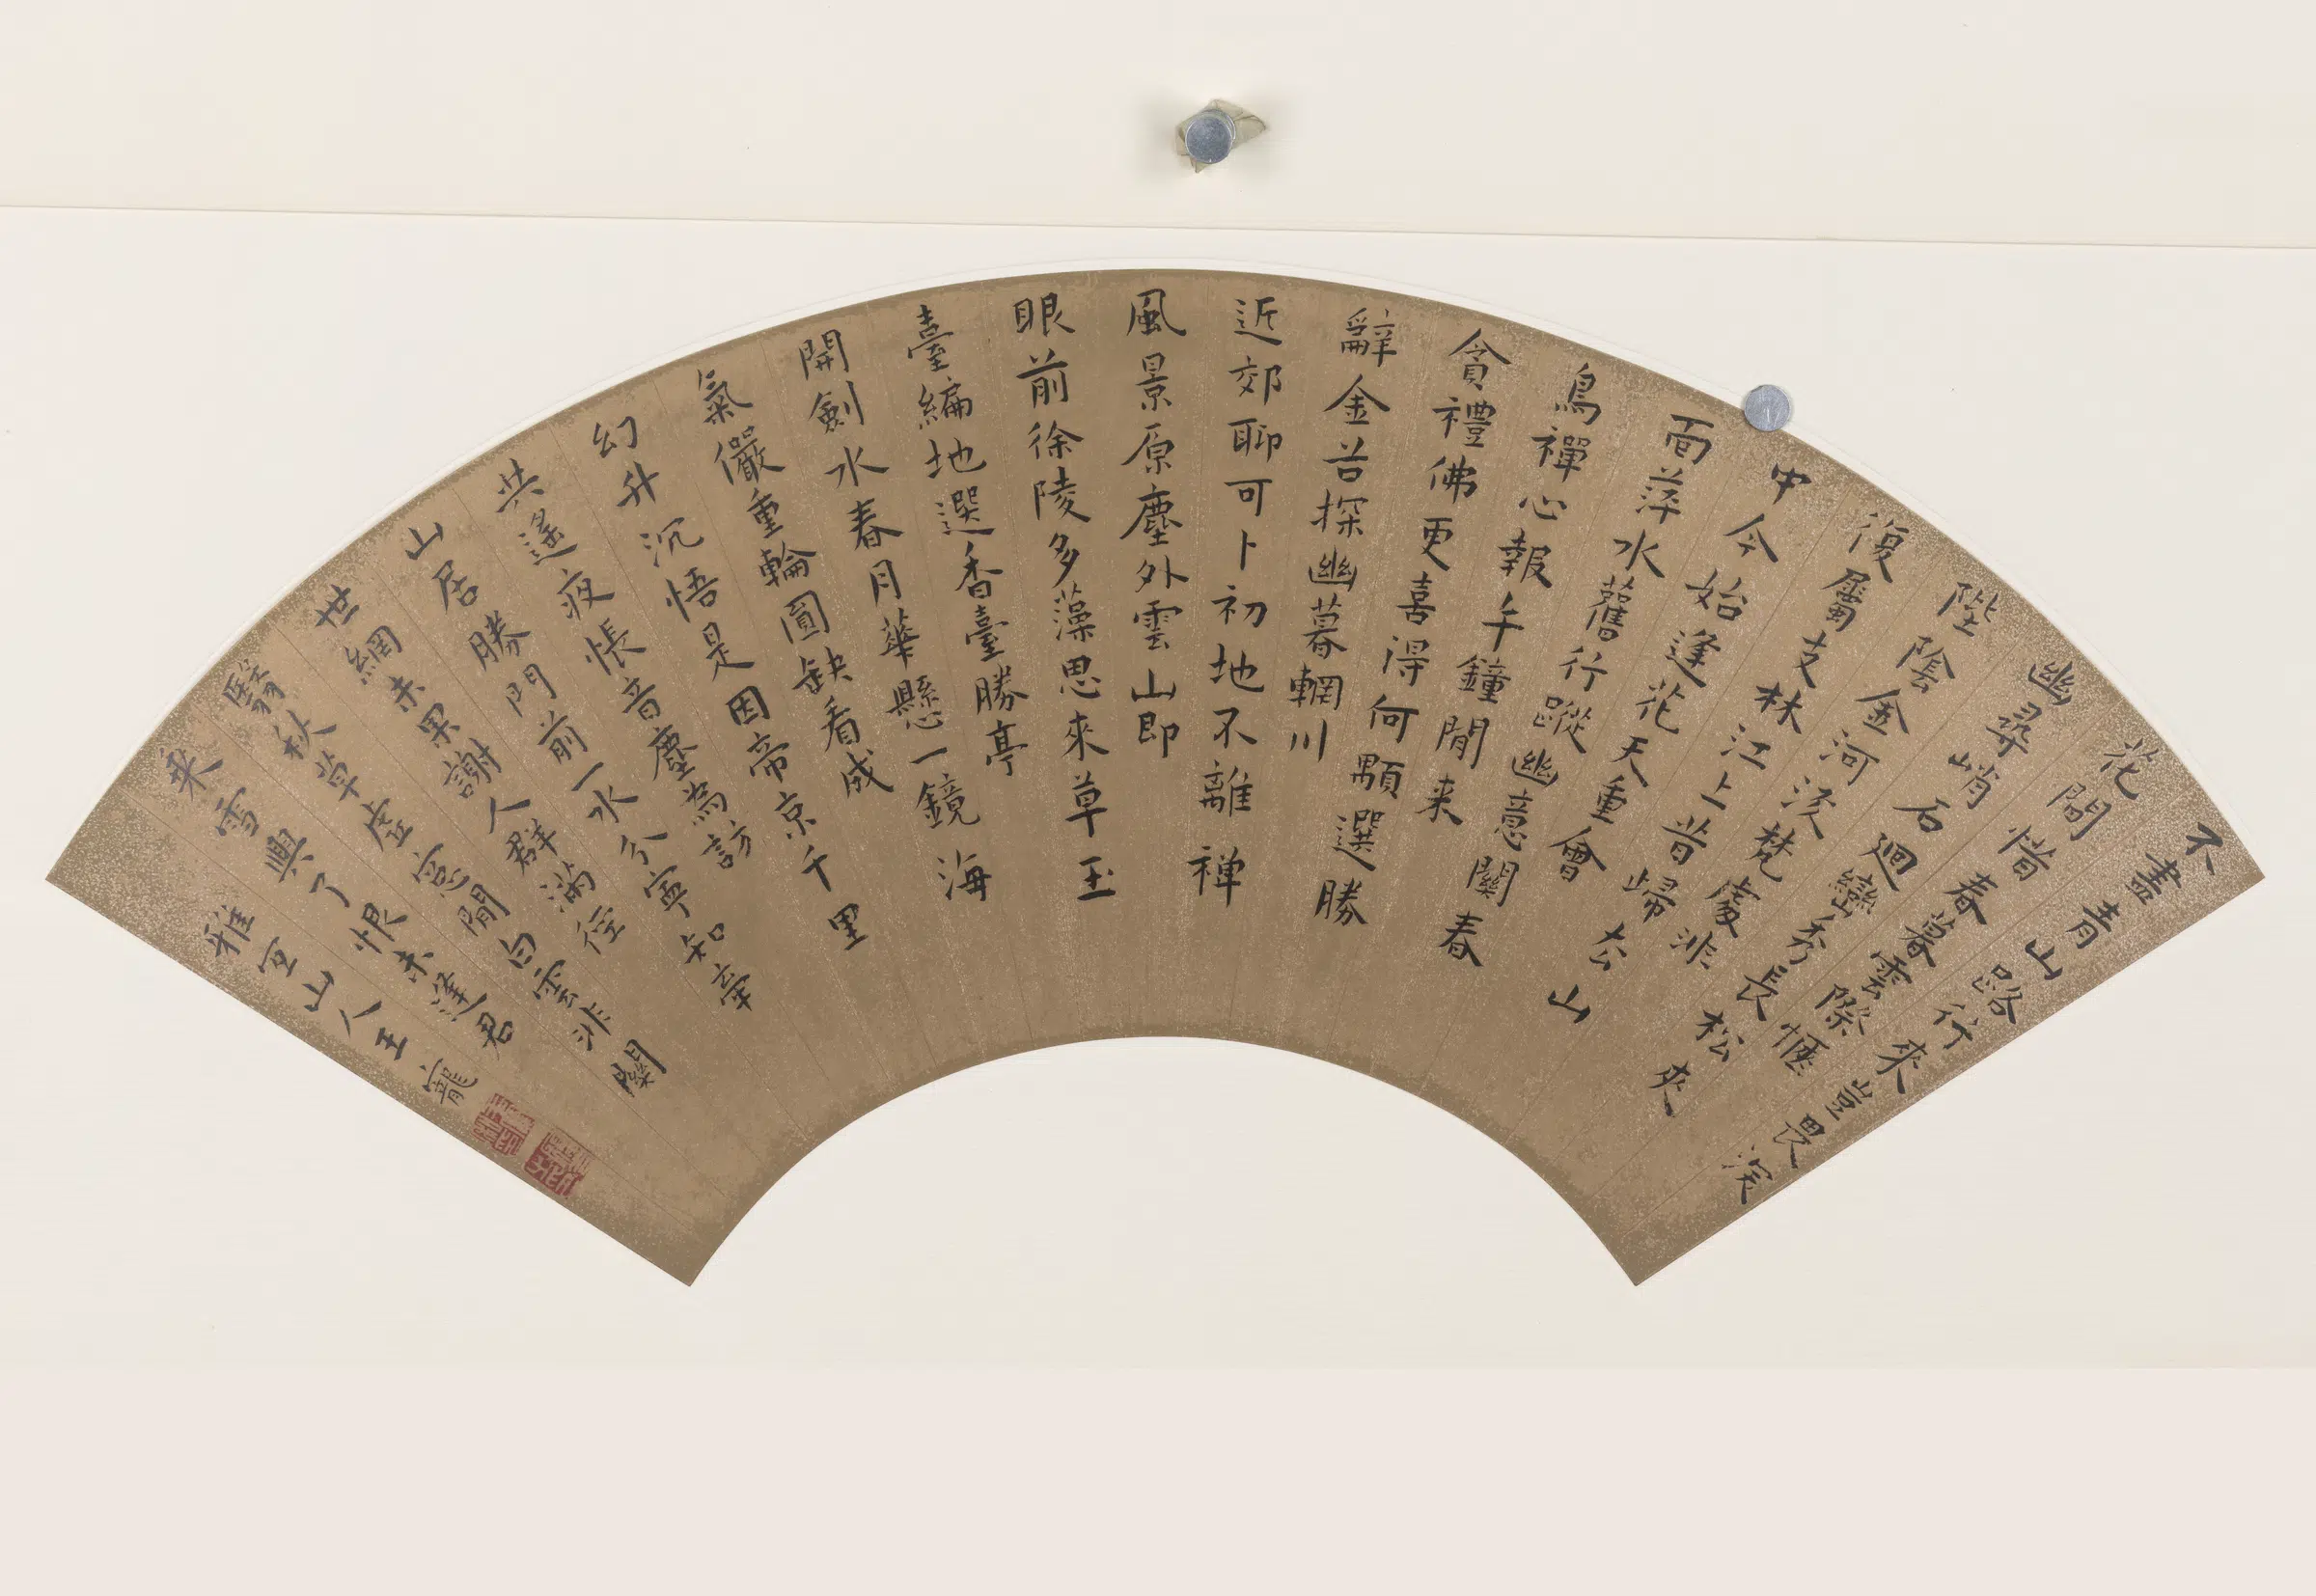 不盡青山路行來豈畏深
花間惜春暮雲際愜
幽尋峭石迴巒秀長松夾
陛陰金河浹梵處非
復屬支林江上昔歸去山
中今始逢花天重會
面萍水舊行蹤幽意關春
鳥禪心報午鐘閒来
貧禮佛更喜得何顒選勝
辭金谷探幽慕輞川
近郊聊可卜初地不離禅
風景原塵外雲山即
眼前徐陵多藻思來草玉
臺編地選香臺勝亭
開劍水春月華懸一鏡海
氣儼重輪圓缺看成
幻升沉悟是因帝京千里
共遙夜悵音塵為訪
山居勝門前一水分寧知牽
世網未果謝人群滿徑
翳秋草虛窓閒白雲非關
乘雪興了恨未逢君
雅宜山人王寵